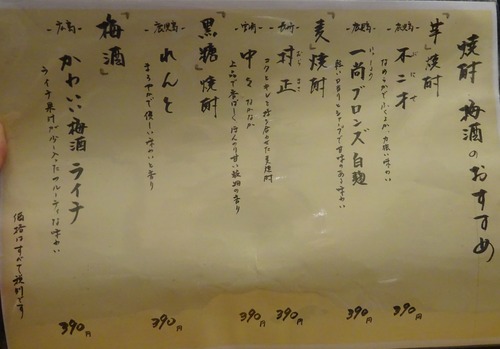 焼酎 梅酒のおすすめ
『芋』焼酎
-鹿児島- 不二才 390円
ぶにせ
なめらかでふくよか、力強い味わい
-鹿児島- 一尚ブロンズ 白麹 390円
いっしょう
軽い口当り、シャープで甘味のある味わい
『麦』焼酎
-長崎- 村正 390円
むらまさ
コクとキレを持ち合わせた麦焼酎
-宮崎- 中々 390円
なかなか
上品で香ばしく、ほんのり甘い穀物の香り
『黒糖』焼酎
-鹿児島- れんと 390円
まろやかで優しい味わいと香り
『梅酒』
-広島- かわいい梅酒 ライチ 390円
ライチ果汁が少し入ったフルーティな味わい
価格はすべて税別です